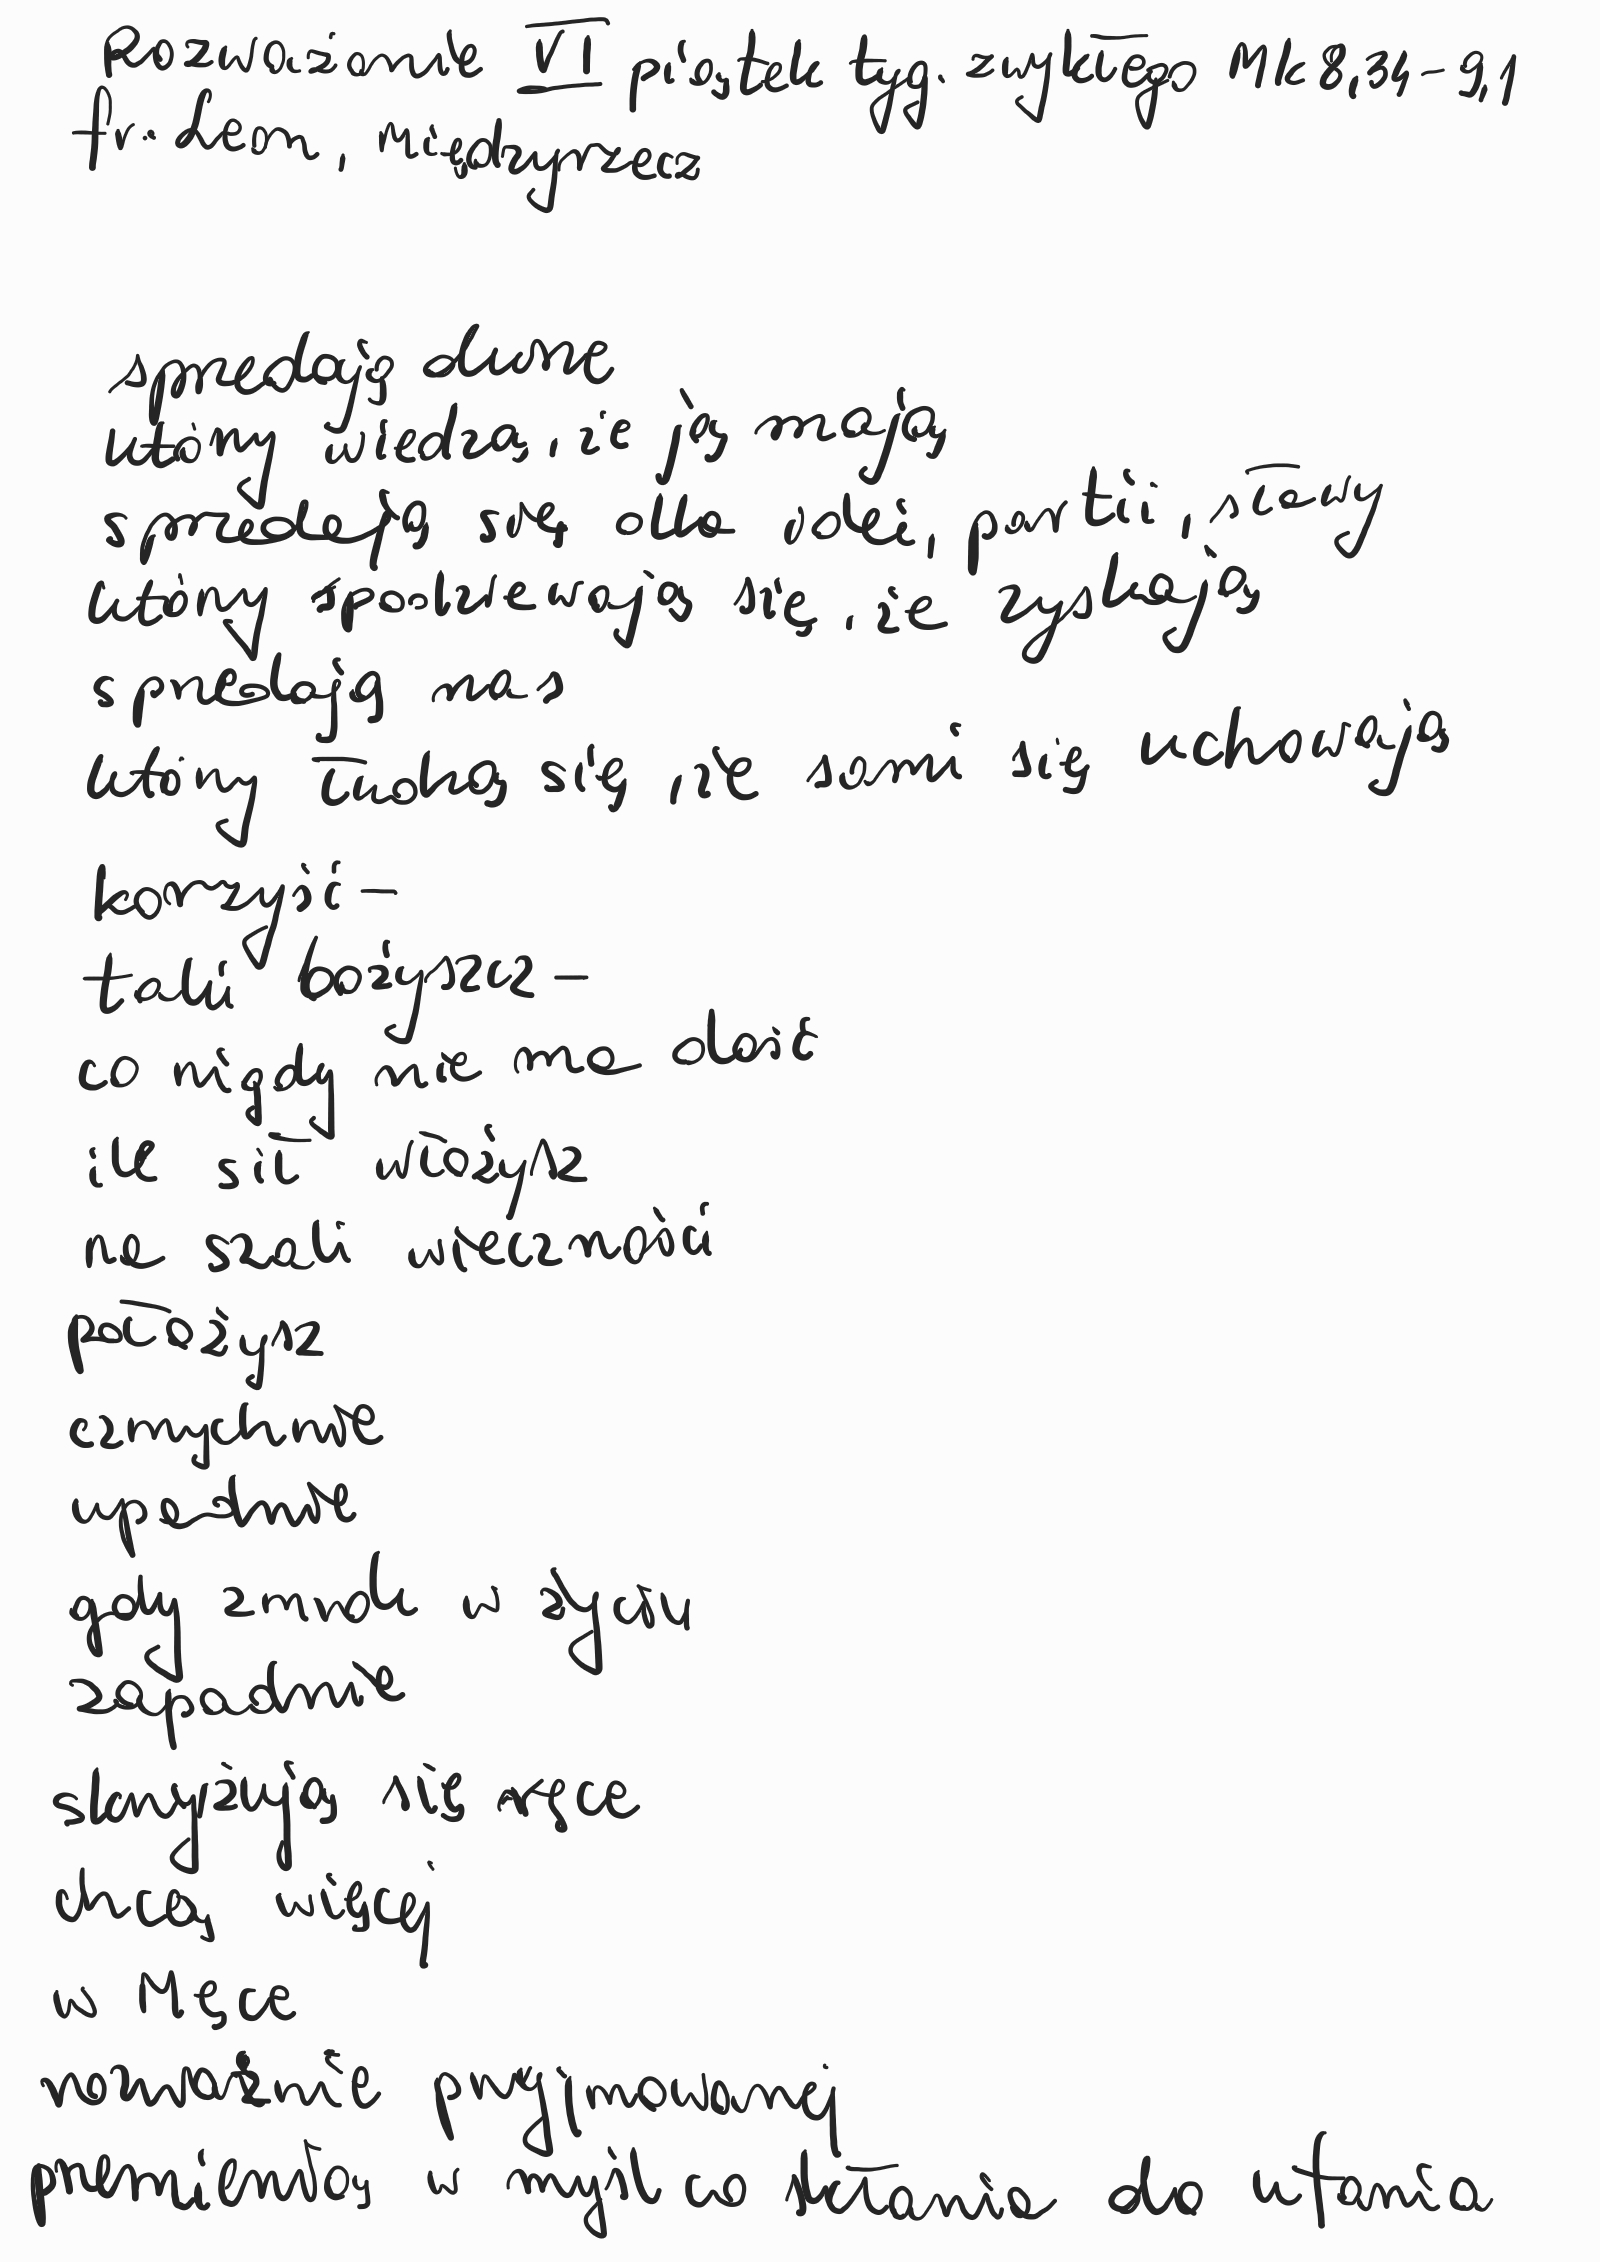 Rozważanie VI piątek tyg. zwykłego Mk 8,34-9,1
fr. Leon, Międzyrzecz
sprzedają duszę
którzy wiedzą, że ją mają
sprzedają się dla idei, partii, sławy
którzy spodziewają się, że zyskają
sprzedają nas
którzy łudzą się, że sami się uchowają
korzyść -
taki bożyszcz -
co nigdy nie ma dość
ile sił włożysz
na szali wieczności
położysz
czmychnie
upadnie
gdy zmrok w życiu
zapadnie
skrzyżują się ręce
chcą więcej
w Męce
rozważnie przyjmowanej
przemienią w myśl co skłania do